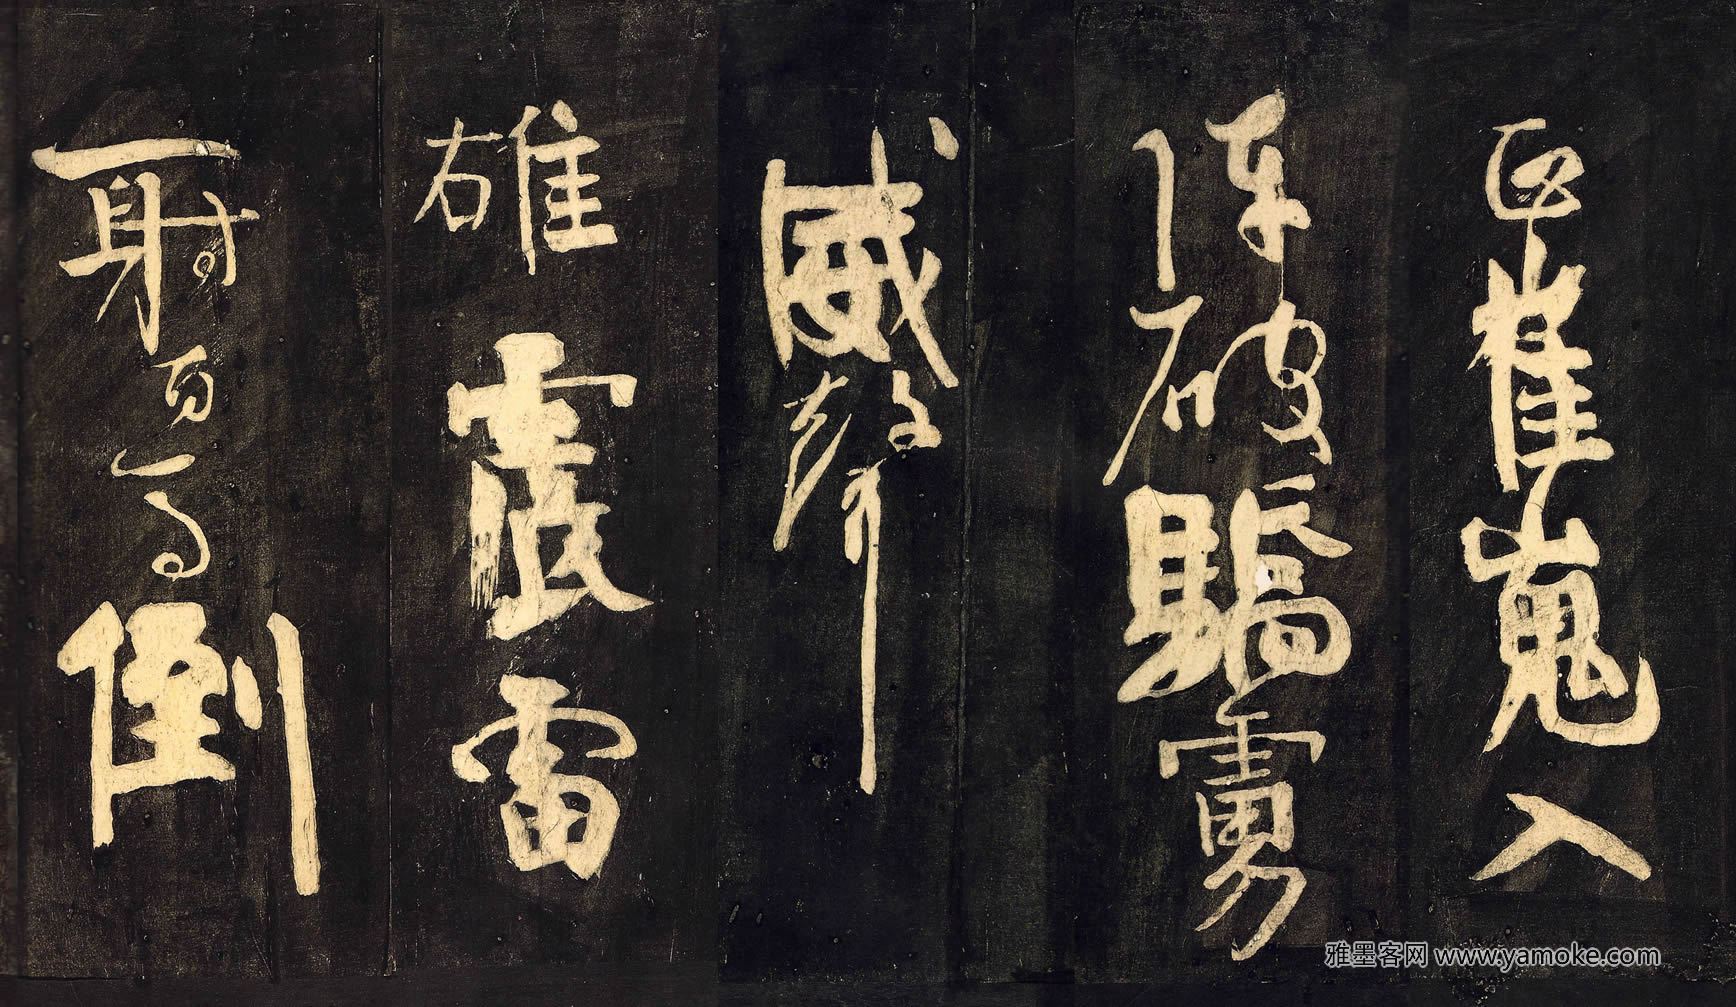 正崔嵬入
陣破驕虜
威聲
雄震雷
一射百馬倒
雅墨客网 www.yamoke.com